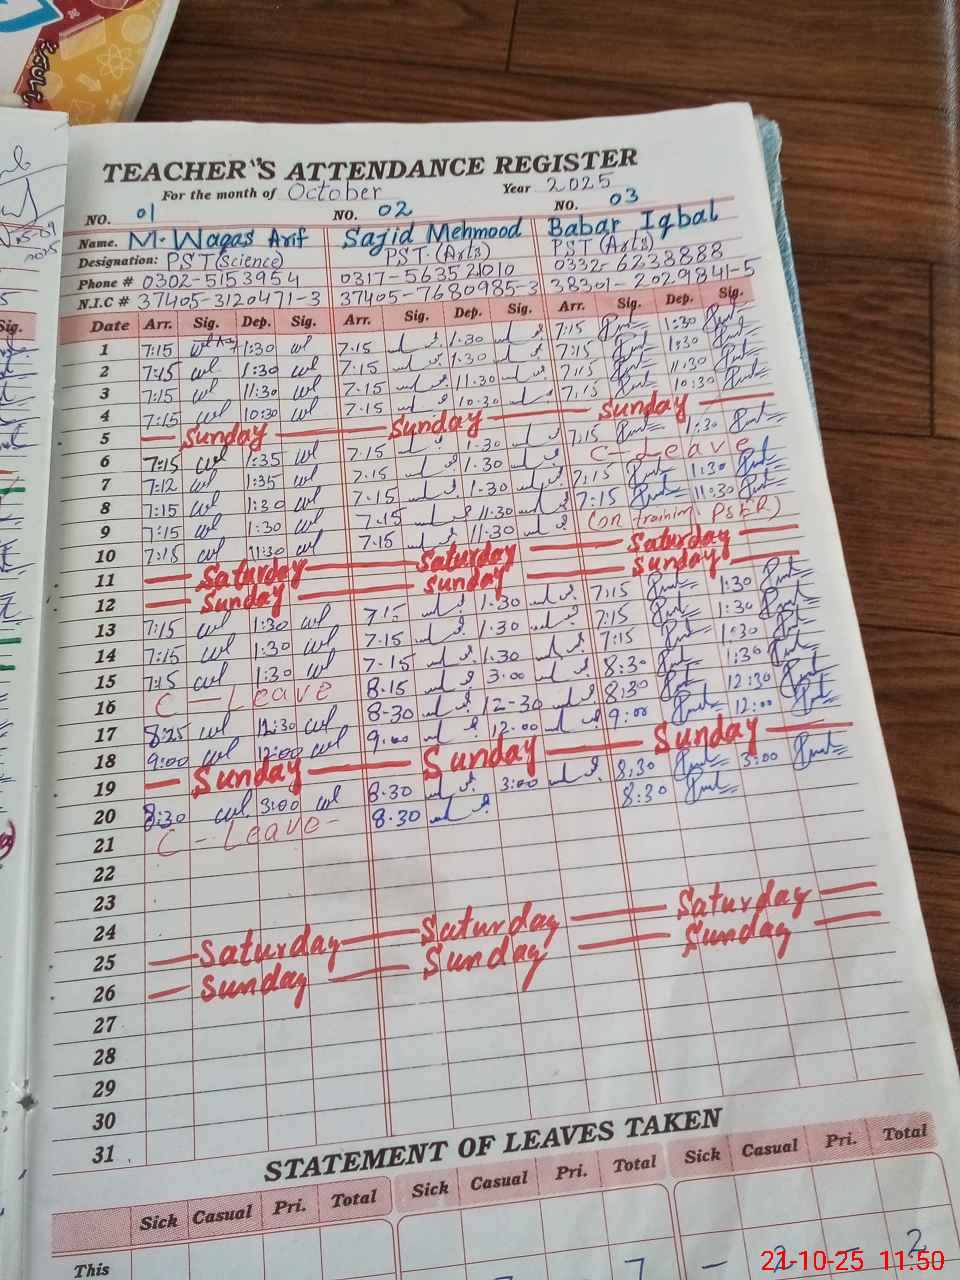 TEACHER'S ATTENDANCE REGISTER
For the month of October Year 2025
NO. 01 NO. 02 NO. 03
Name. M. Waqas Arif Sajid Mehmood Babar Iqbal
Designation: PST (Science) PST. (Arts) PST (Arts)
Phone # 0302-5153954 0317-5635 0332-6238888
N.I.C # 37405-3120471-3 37405-7680985-3 38301-2029841-5
Date Arr. Sig. Dep. Sig. Arr. Sig. Dep. Sig. Arr. Sig. Dep. Sig.
1 7:15 1:30 7.15 1.30 7:15 1:30
2 7:15 1:30 7.15 1.30 7:15 1:30
3 7:15 11:30 7.15 11.30 7:15 11:30
4 7:15 10:30 7.15 10.30 7:15 10:30
5 Sunday Sunday Sunday
6 7:15 1:35 7.15 1.30 7:15 1:30
7 7:12 1:35 7.15 1.30 C-Leave
8 7:15 1:30 7.15 1.30 7:15 1:30
9 7:15 1:30 7.15 11.30 7:15 11:30
10 7:15 11:30 7.15 11.30 (on training
11 Saturday Saturday Saturday
12 Sunday Sunday Sunday
13 7:15 1:30 7.15 1.30 7:15 1:30
14 7:15 1:30 7.15 1.30 7:15 1:30
15 7:15 1:30 7.15 1.30 7:15 1:30
16 C-Leave 8.15 3.00 8:30 1:30
17 8:25 12:30 8-30 12-30 8:30 12:30
18 9:00 12:00 9.00 12.00 9:00 12:00
19 Sunday Sunday Sunday
20 8:30 3:00 8.30 3:00 8:30 3:00
21 C-Leave- 8.30 8:30
22
23
24
25 Saturday Saturday Saturday
26 Sunday Sunday Sunday
27
28
29
30
31
STATEMENT OF LEAVES TAKEN
Sick Casual Pri. Total Sick Casual Pri. Total Sick Casual Pri. Total
This - 2 - 2
21-10-25 11:50